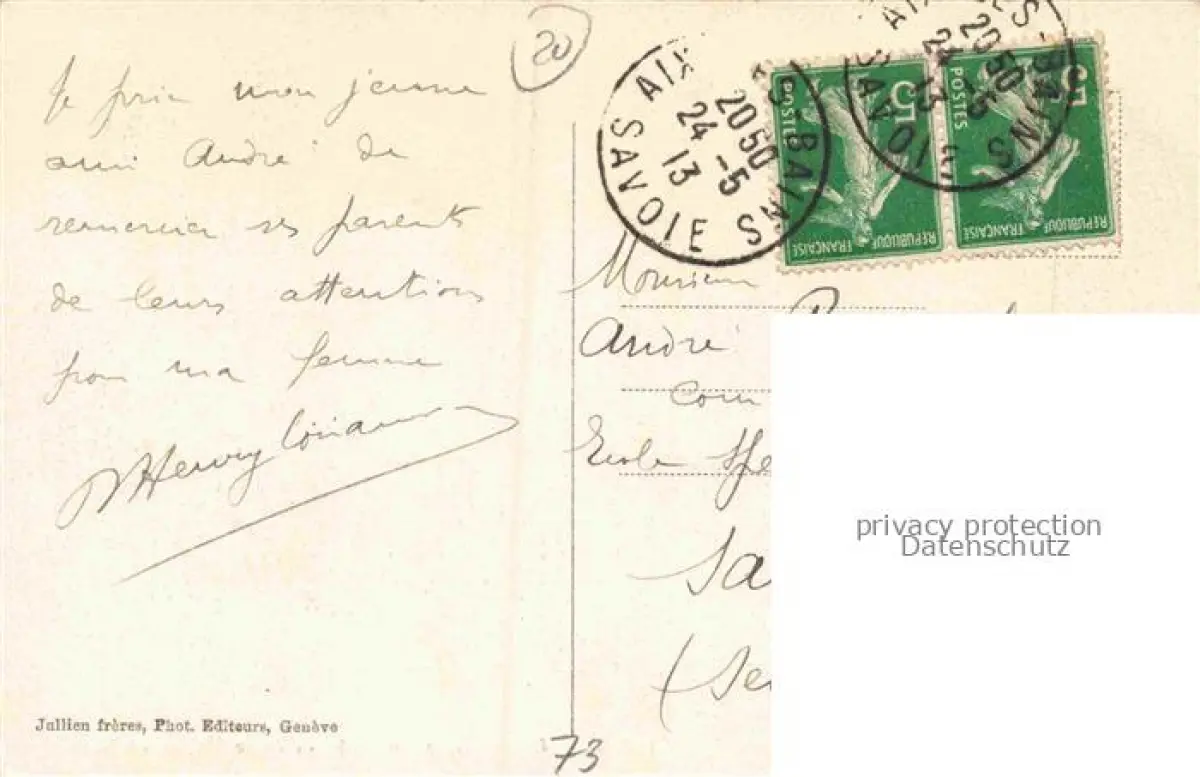 20
Je prie mon jeune
ami André de
remercier ses parents
de leurs attentions
pour ma femme
Henry
Jullien frères, Phot. Editeurs, Genève
AIX-LES-BAINS
20 50
24 -5
13
SAVOIE
AIX-LES-BAINS
20 50
24 -5
13
SAVOIE
5
POSTES
REPUBLIQUE FRANÇAISE
5
POSTES
REPUBLIQUE FRANÇAISE
Monsieur
André
Ecole Spe
Sa
(Se
73
privacy protection
Datenschutz